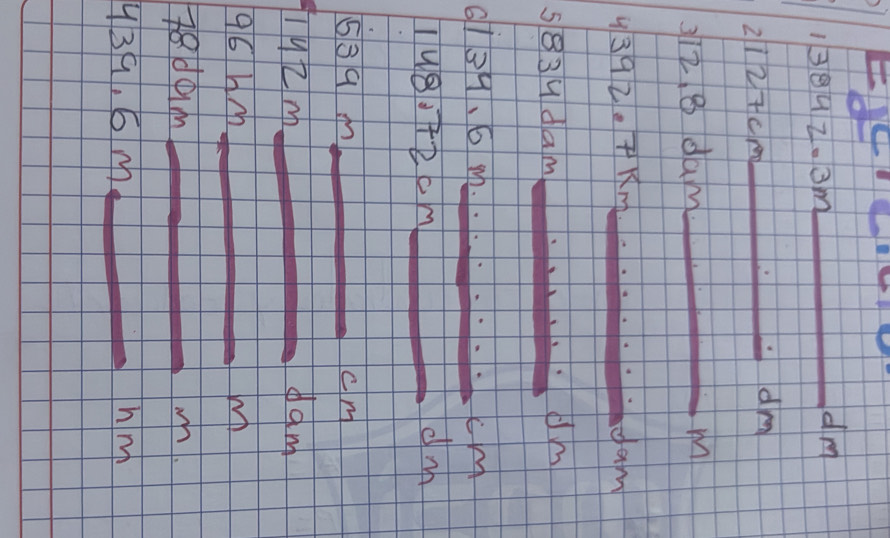 Ejercicio.
13842.3m dm
2127cm dm
312,8 dam m
4392.7Km dam
5834dam dm
6134.6 m cm
148.72cm dm
539 m cm
142 m dam
96 hm m
78dam m
434.6 m hm